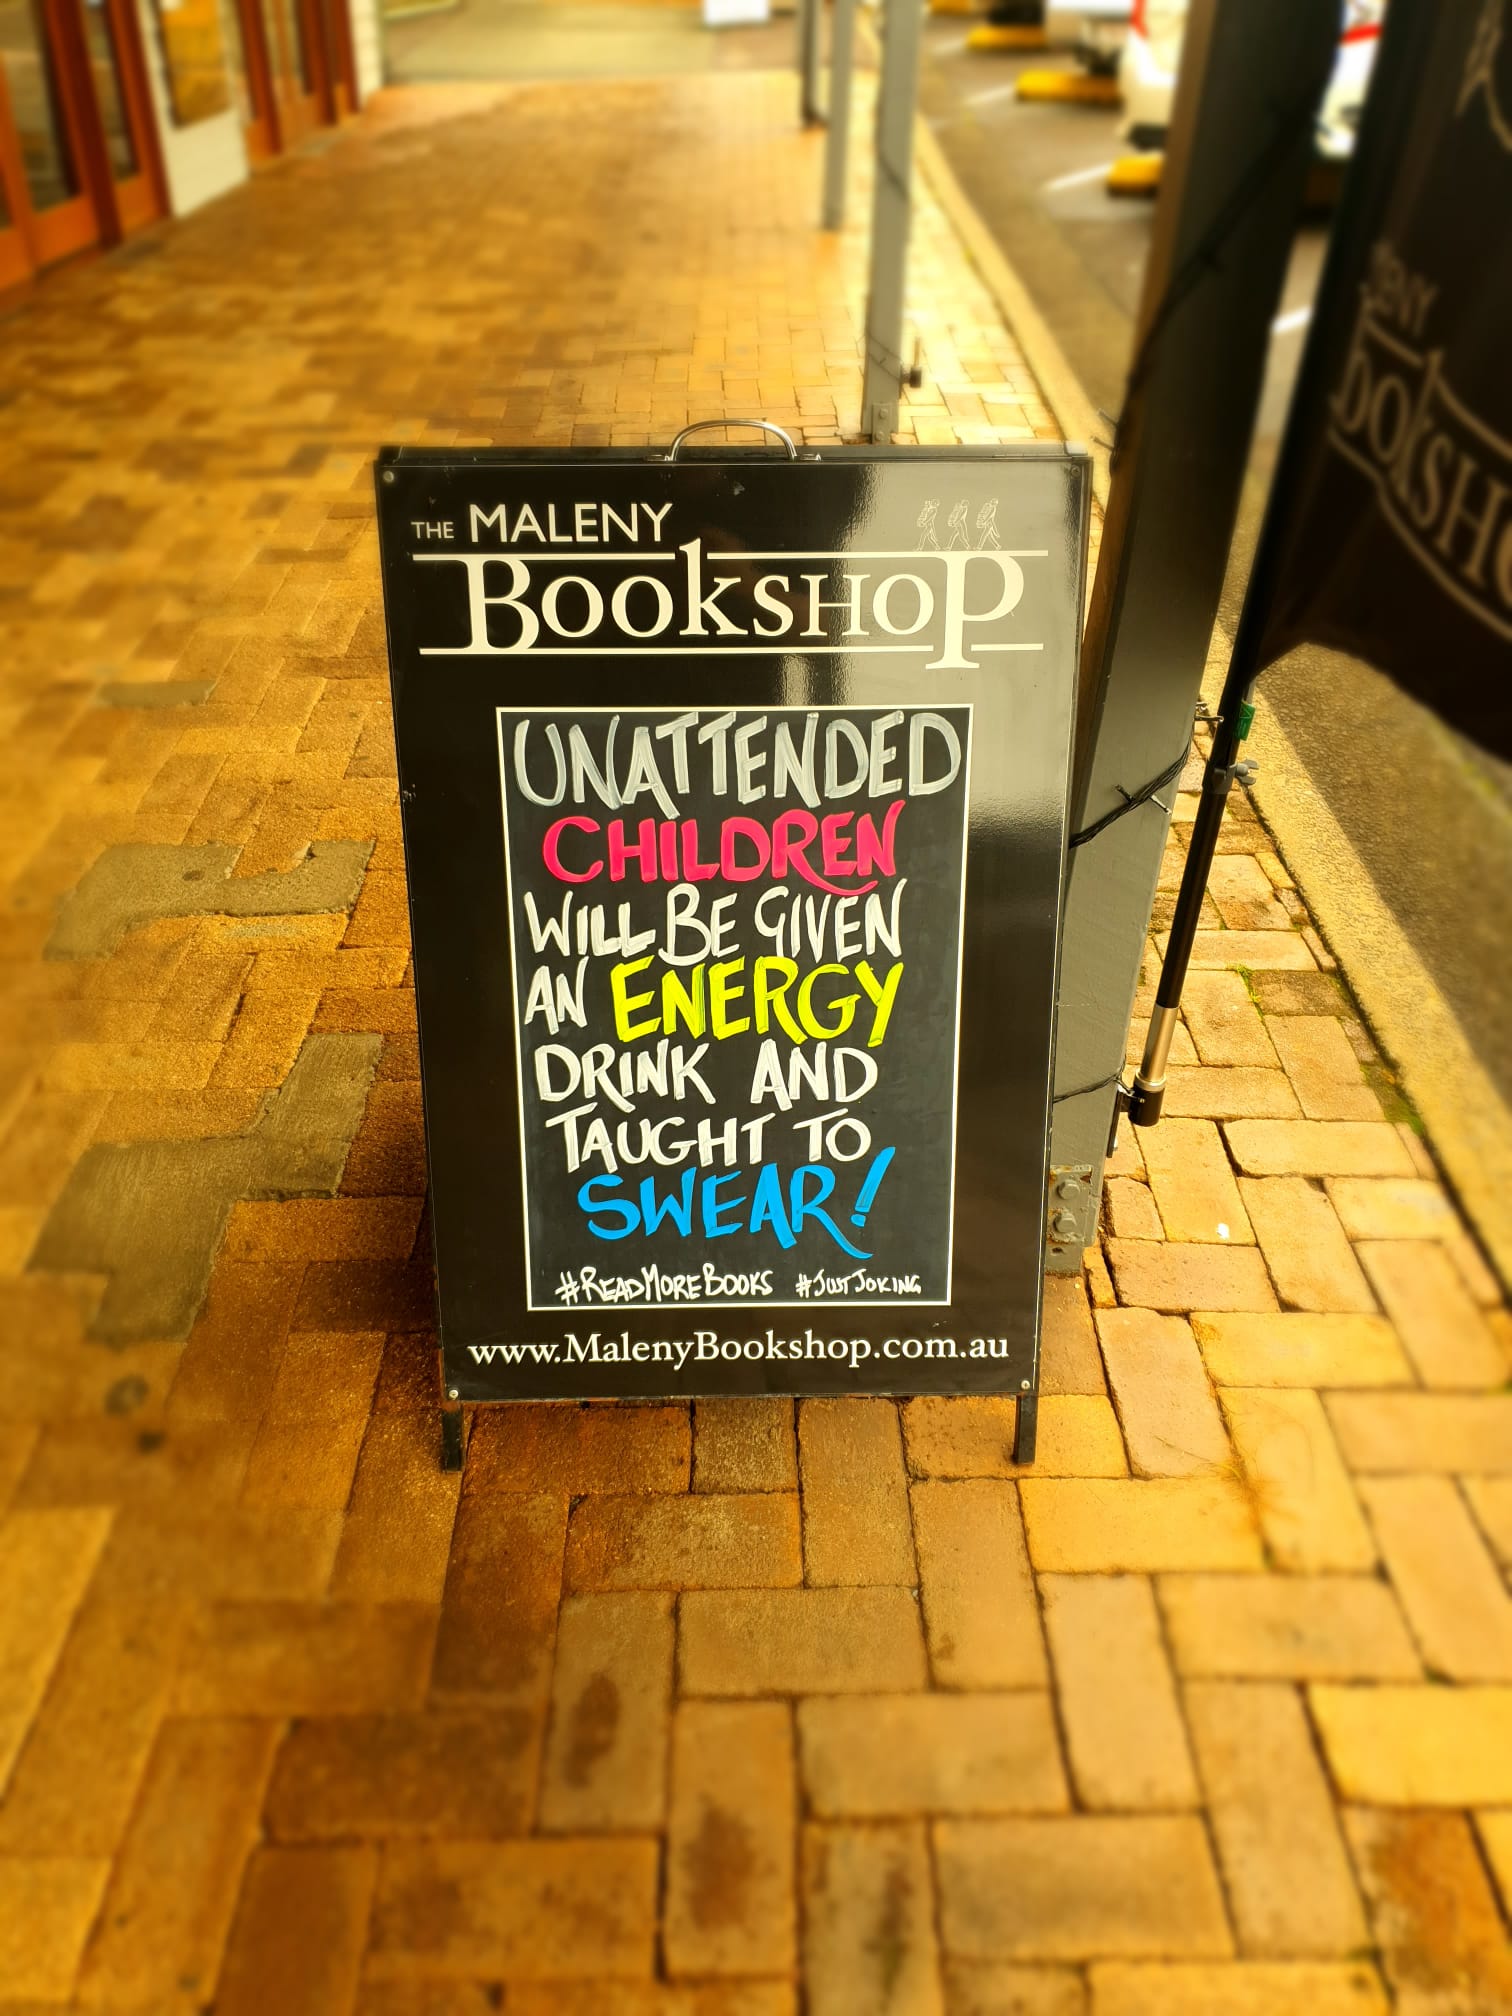 THE MALENY
BOOKSHOP
UNATTENDED
CHILDREN
WILL BE GIVEN
AN ENERGY
DRINK AND
TAUGHT TO
SWEAR!
#READMOREBOOKS #JUSTJOKING
www.MalenyBookshop.com.au